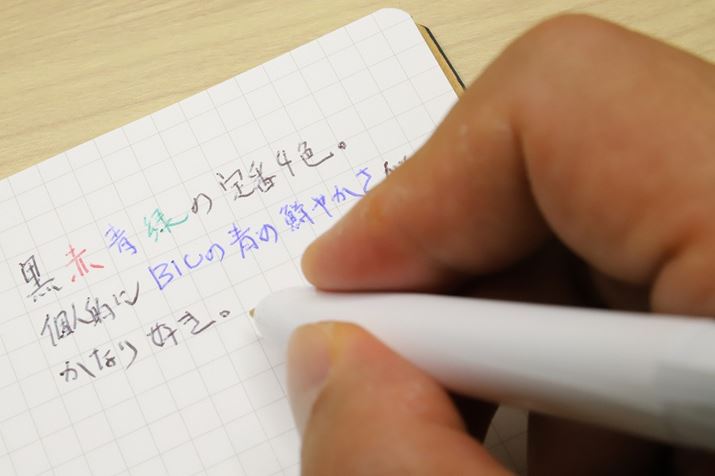 黒赤青緑の定番4色。
個人的にBICの青の鮮やかさが
かなり好き。